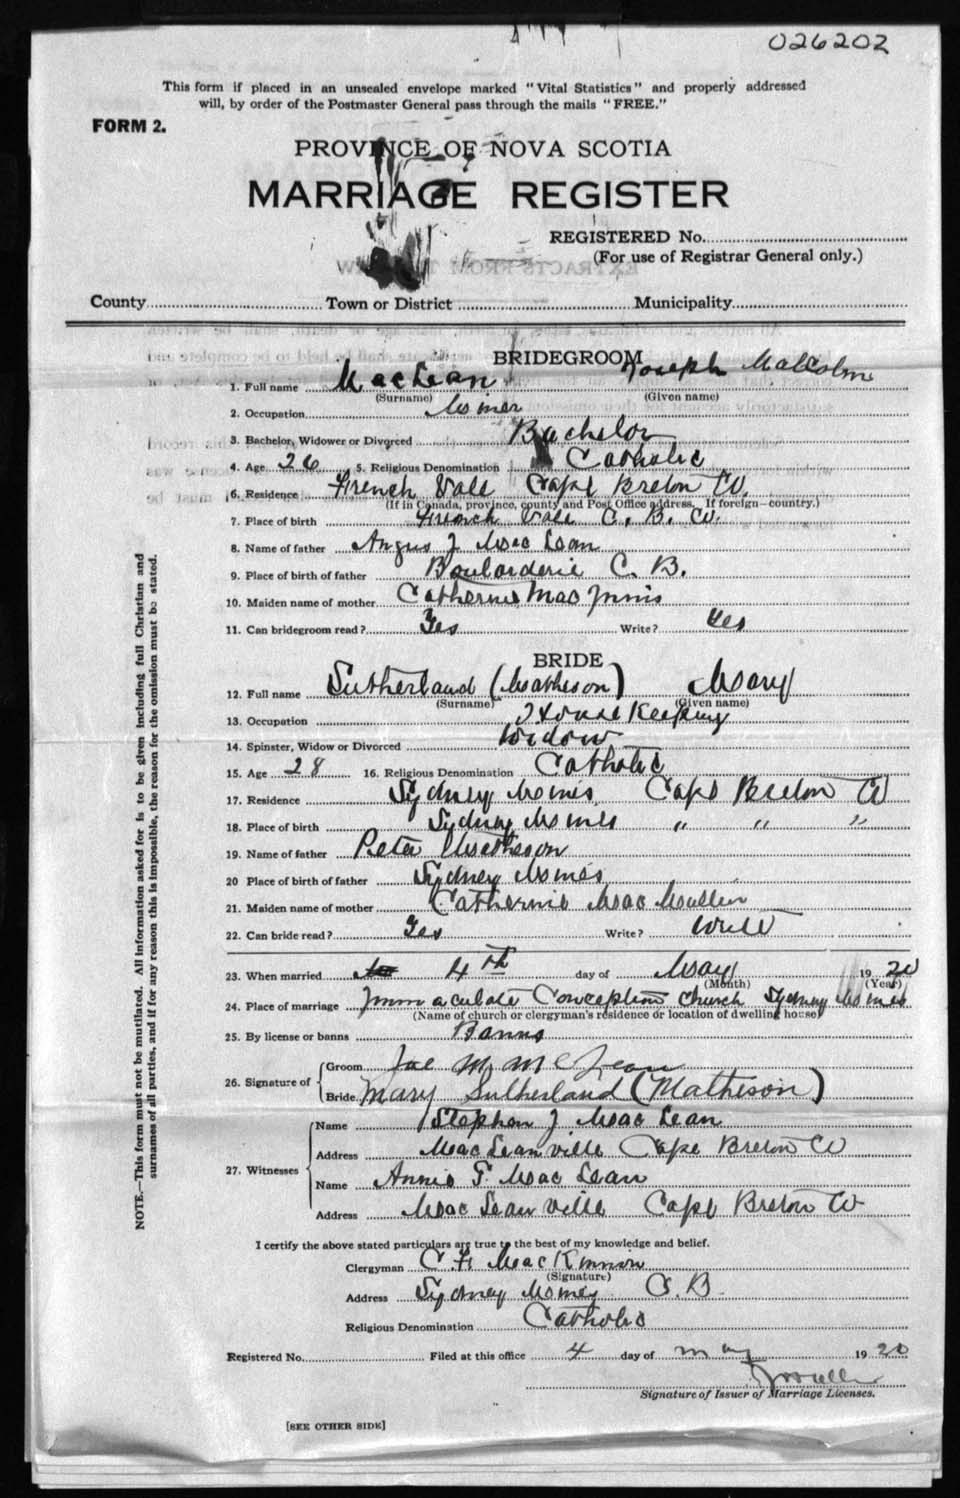 026202
This form if placed in an unsealed envelope marked "Vital Statistics" and properly addressed
will, by order of the Postmaster General pass through the mails "FREE."
FORM 2.
PROVINCE OF NOVA SCOTIA
MARRIAGE REGISTER
REGISTERED No.
(For use of Registrar General only.)
County Town or District Municipality
BRIDEGROOM
1. Full name MacLean Joseph Malcolm
(Surname) (Given name)
2. Occupation Miner
3. Bachelor, Widower or Divorced Bachelor
4. Age 26 5. Religious Denomination Catholic
6. Residence French Vale Cape Breton Co.
(If in Canada, province, county and Post Office address. If foreign—country.)
7. Place of birth French Vale C. B. Co.
8. Name of father Angus J MacLean
9. Place of birth of father Boularderie C. B.
10. Maiden name of mother Catherine MacInnis
11. Can bridegroom read? Yes Write? Yes
BRIDE
12. Full name Sutherland (Matheson) Mary
(Surname) (Given name)
13. Occupation House Keeping
14. Spinster, Widow or Divorced Widow
15. Age 28 16. Religious Denomination Catholic
17. Residence Sydney Mines Cape Breton Co
18. Place of birth Sydney Mines " " "
19. Name of father Peter Matheson
20 Place of birth of father Sydney Mines
21. Maiden name of mother Catherine MacMullin
22. Can bride read? Yes Write? Write
23. When married 4th day of May 1920
(Month) (Year)
24. Place of marriage Immaculate Conception Church Sydney Mines
(Name of church or clergyman's residence or location of dwelling house)
25. By license or banns Banns
26. Signature of Groom Joe M McLean
Bride Mary Sutherland (Matheson)
27. Witnesses Name Stephen J MacLean
Address MacLeanville Cape Breton Co
Name Annie F. MacLean
Address MacLeanville Cape Breton Co
I certify the above stated particulars are true to the best of my knowledge and belief.
Clergyman C F MacKinnon
(Signature)
Address Sydney Mines C. B.
Religious Denomination Catholic
Registered No. Filed at this office 4 day of May 1920
Signature of Issuer of Marriage Licenses.
[SEE OTHER SIDE]
NOTE.—This form must not be mutilated. All information asked for is to be given including full Christian and
surnames of all parties, and if for any reason this is impossible, the reason for the omission must be stated.